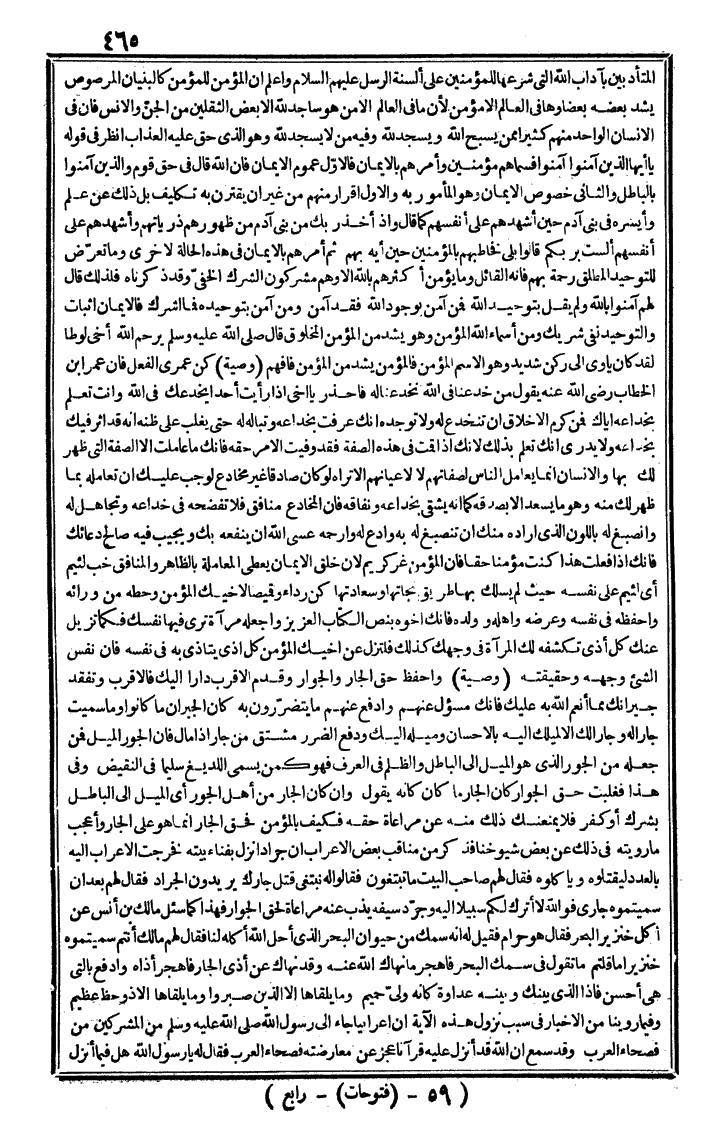 ٤٦٥
المتأدبين بآداب الله التى شرعها للمؤمنين على ألسنة الرسل عليهم السلام واعلم ان المؤمن للمؤمن كالبنيان المرصوص
يشد بعضه بعضا وما فى العالم الا مؤمن لأن ما فى العالم الا من هو ساجد لله الا بعض الثقلين من الجن والانس فان فى
الانسان الواحد منهم كثيرا من يسبح الله ويسجد لله وفيه من لا يسجد لله وهو الذى حق عليه العذاب انظر فى قوله
يا أيها الذين آمنوا آمنوا فسماهم مؤمنين وأمرهم بالايمان فالاول عموم الايمان فان الله قال فى حق قوم والذين آمنوا
بالباطل والثانى خصوص الايمان وهو المأمور به والاول اقرار منهم من غير ان يقترن به تكليف بل ذلك عن علم
وأيسره فى بنى آدم حين أشهدهم على أنفسهم كما قال واذ أخذ ربك من بنى آدم من ظهورهم ذرياتهم وأشهدهم على
أنفسهم ألست بربكم قالوا بلى فخاطبهم بالمؤمنين حين أيه بهم ثم أمرهم بالايمان فى هذه الحالة لاخرى وما تعرّض
للتوحيد المطلق رحمة بهم فانه القائل وما يؤمن أكثرهم بالله الا وهم مشركون الشرك الخفىّ وقد ذكرناه فلذلك قال
لهم آمنوا بالله ولم يقل بتوحيد الله فمن آمن بوجود الله فقد آمن ومن آمن بتوحيده فما اشرك فالايمان اثبات
والتوحيد نفى شريك ومن أسماء الله المؤمن وهو يشد من المؤمن المخلوق قال صلى الله عليه وسلم يرحم الله أخى لوطا
لقد كان يأوى الى ركن شديد وهو الاسم المؤمن فالمؤمن يشد من المؤمن فافهم (وصية) كن عمرى الفعل فان عمر ابن
الخطاب رضى الله عنه يقول من خدعنا فى الله نخدعنا له فاحذر يا اخى اذا رأيت أحدا يخدعك فى الله وانت تعلم
بخداعه اياك فمن كرم الاخلاق ان تنخدع له ولا توجده انك عرفت بخداعه وتبا له له حتى يغلب على ظنه انه قد اثر فيك
بخداعه ولا يدرى انك تعلم بذلك لانك اذا قمت فى هذه الصفة فقد وفيت الامر حقه فانك ما عاملت الا الصفة التى ظهر
لك بها والانسان انما يعامل الناس لصفاتهم لا لاعيانهم الا تراه لو كان صادقا غير مخادع لوجب عليك ان تعامله بما
ظهر لك منه وهو ما يسعد الا بصدقه كما انه يشقى بخداعه ونفاقه فان المخادع منافق فلا تفضحه فى خداعه وتجاهل له
وانصبغ له باللون الذى اراده منك ان تنصبغ له به وادع له وارحمه عسى الله ان ينفعه بك ويجيب فيه صالح دعائك
فانك اذا فعلت هذا كنت مؤمنا حقا فان المؤمن غر كريم لان خلق الايمان يعطى المعاملة بالظاهر والمنافق خب لئيم
أى لئيم على نفسه حيث لم يسلك بها طريق نجاتها وسعادتها كن رداء وقميصا لاخيك المؤمن وحطه من ورائه
واحفظه فى نفسه وعرضه واهله وولده فانك اخوه بنص الكتاب العزيز واجعله مرآة ترى فيها نفسك فكما تزيل
عنك كل أذى تكشفه لك المرآة فى وجهك كذلك فلتزل عن اخيك المؤمن كل اذى يتاذى به فى نفسه فان نفس
الشئ وجهه وحقيقته (وصية) واحفظ حق الجار والجوار وقدم الاقرب دارا اليك فالاقرب وتفقد
جيرانك مما أنعم الله به عليك فانك مسؤل عنهم وادفع عنهم ما يتضررون به كان الجيران ما كانوا وما سميت
جارا له وجارا لك الا لميلك اليه بالاحسان وميله اليك ودفع الضرر مشتق من جار اذا مال فان الجور الميل فمن
جعله من الجور الذى هو الميل الى الباطل والظلم فى العرف فهو كمن يسمى اللديغ سليما فى النقيض وفى
هذا فغلبت حق الجوار كان الجار ما كان كانه يقول وان كان الجار من أهل الجور أى الميل الى الباطل
بشرك أو كفر فلا يمنعنك ذلك منه عن مراعاة حقه فكيف بالمؤمن فحق الجار انما هو على الجار وأعجب
ما رويته فى ذلك عن بعض شيوخنا فذكر من مناقب بعض الاعراب ان جرادا نزل بفناء بيته فخرجت الاعراب اليه
بالعدد ليقتلوه ويا كلوه فقال لهم صاحب البيت ما تبتغون فقالوا له نبتغى قتل جارك يريدون الجراد فقال لهم بعد ان
سميتموه جارى فوالله لا أترك لكم سبيلا اليه وجرّد سيفه يذب عنه مراعاة لحق الجوار فهذا كما سئل مالك بن أنس عن
أكل خنزير البحر فقال هو حرام فقيل له انه سمك من حيوان البحر الذى أحل الله أكله لنا فقال لهم مالك أنتم سميتموه
خنزيرا ما قلتم ما تقول فى سمك البحر فاهجر ما نهاك الله عنه وقد نهاك عن أذى الجار فاهجر أذاه وادفع بالتى
هى أحسن فاذا الذى بينك وبينه عداوة كانه ولىّ حميم وما يلقاها الا الذين صبروا وما يلقاها الا ذو حظ عظيم
وفيما روينا من الاخبار فى سبب نزول هذه الآية ان اعرابيا جاء الى رسول الله صلى الله عليه وسلم من المشركين من
فصحاء العرب وقد سمع ان الله قد أنزل عليه قرآنا عجز عن معارضته فصحاء العرب فقال له يارسول الله هل فيما أنزل
( ٥٩ - (فتوحات) - رابع )